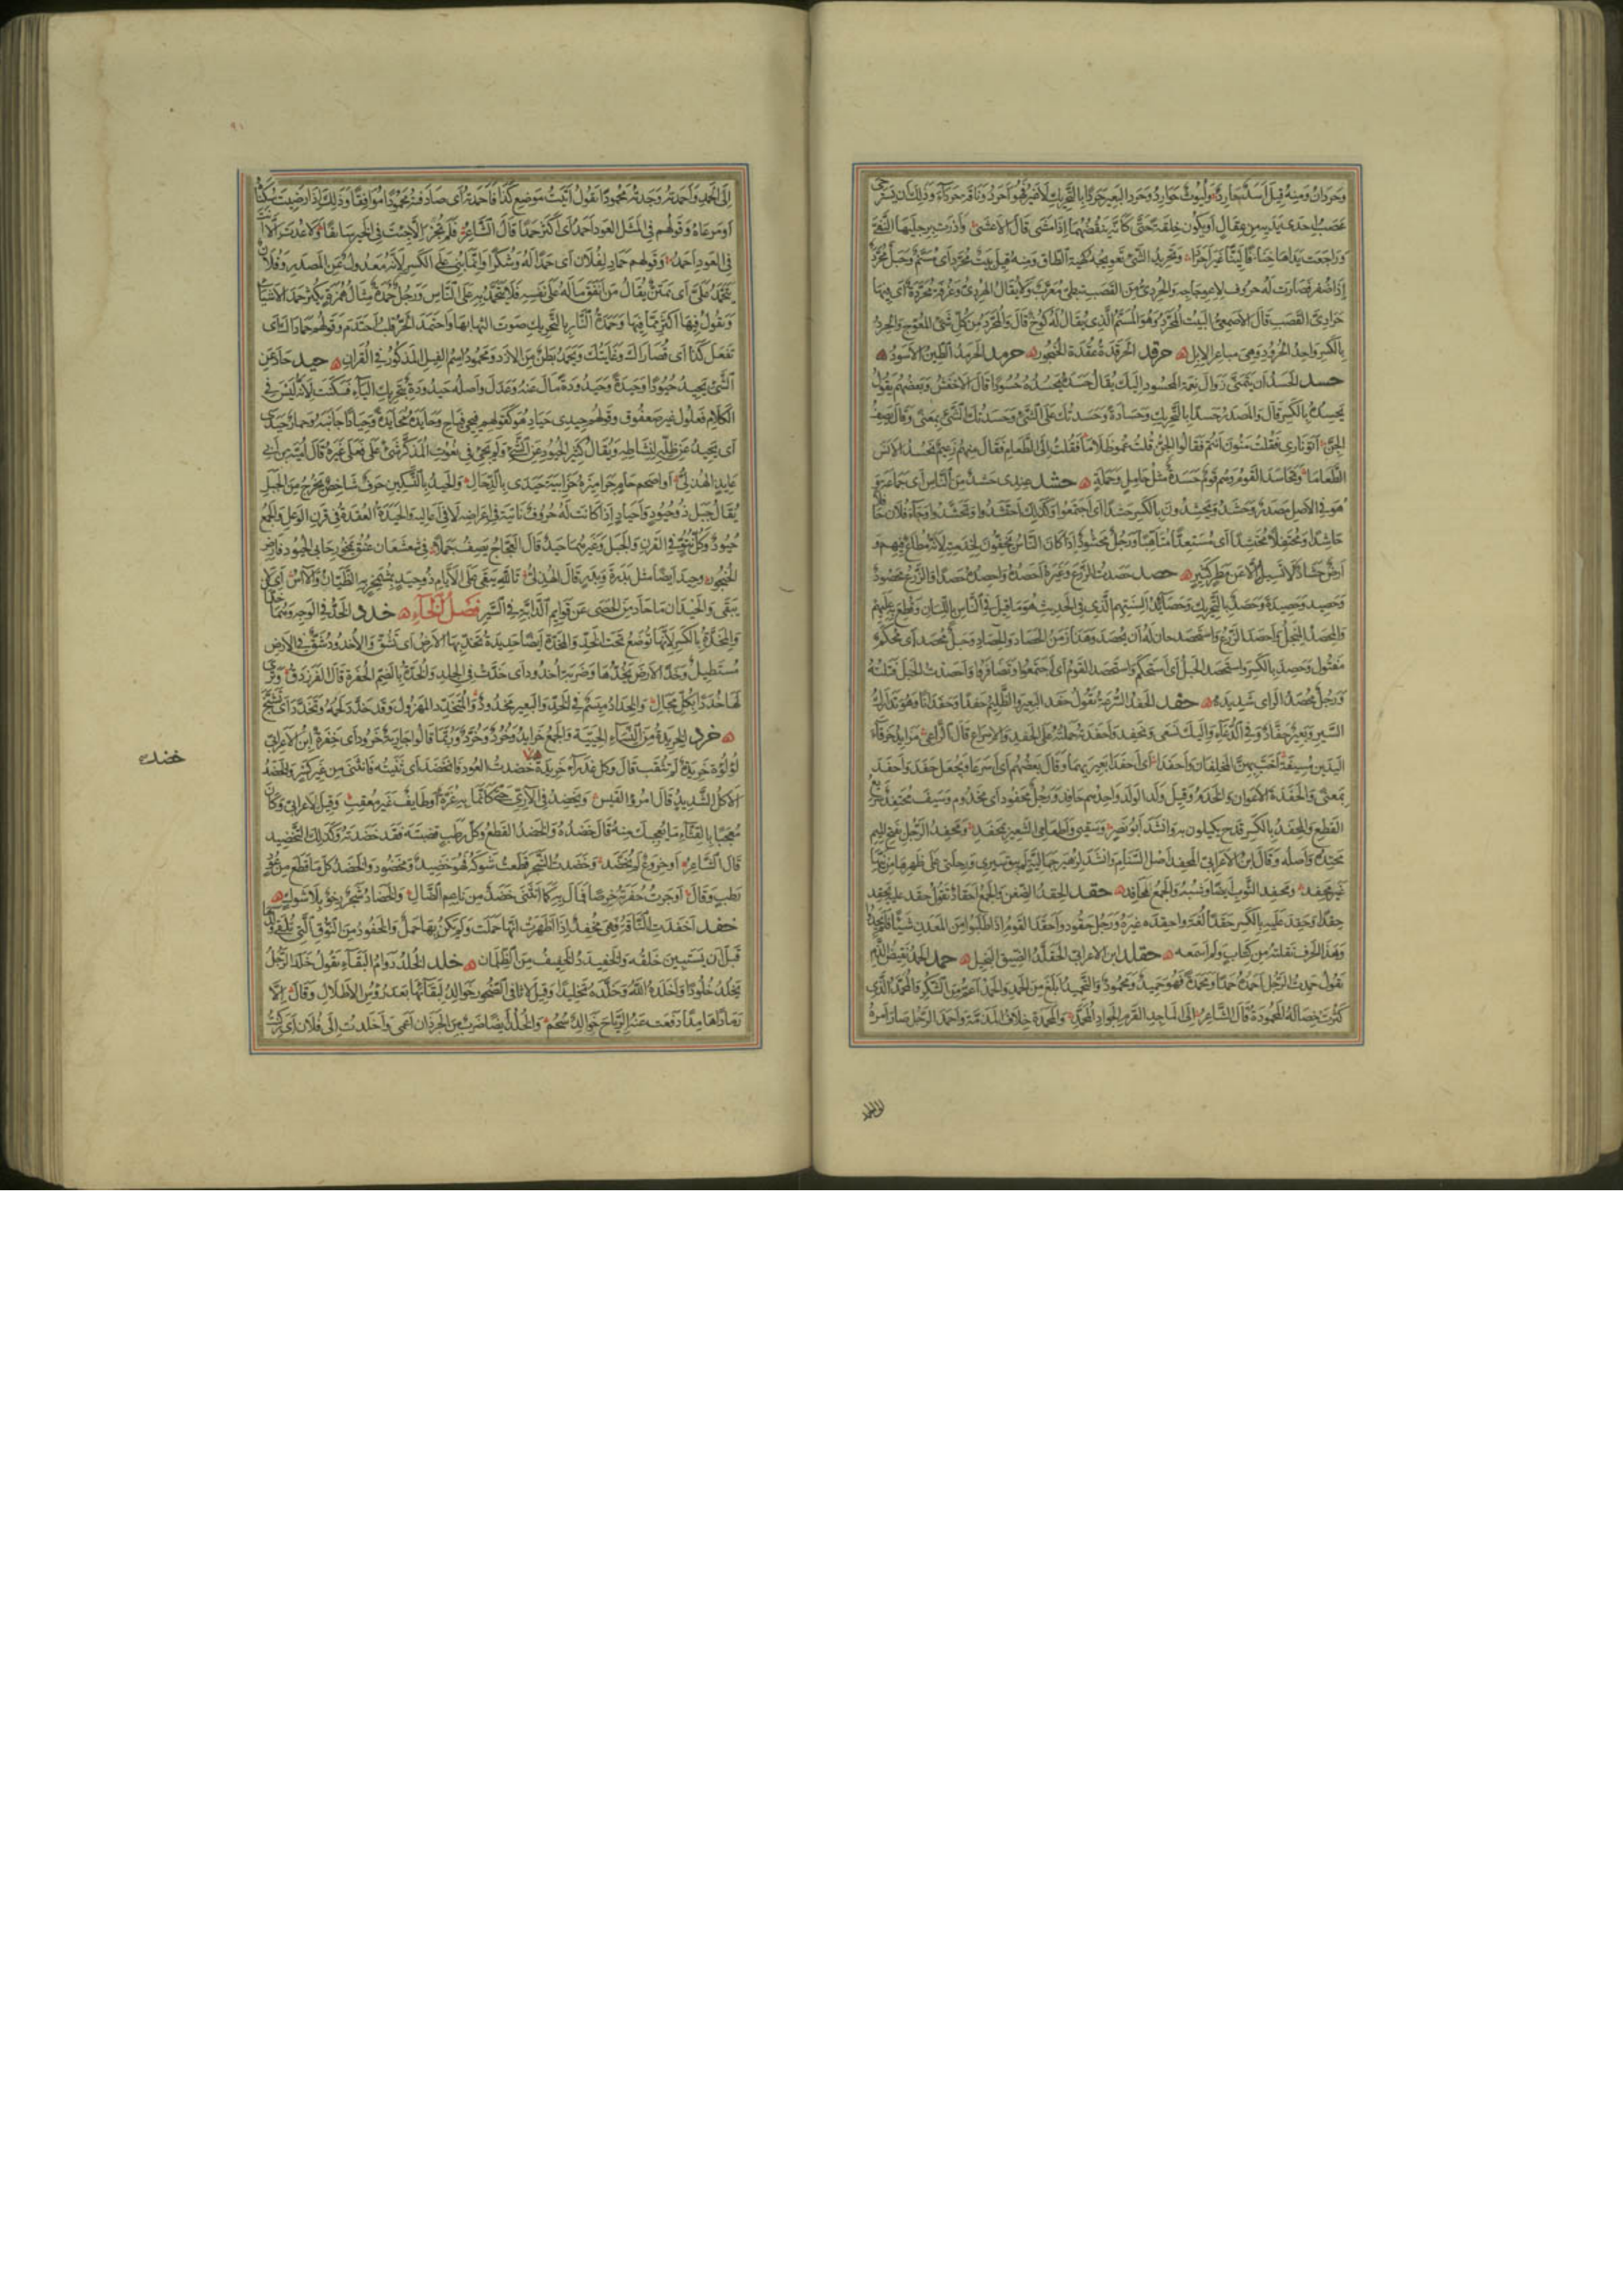 وحردان ومنه قيل اسد حارد وليوث حوارد وحرد البعير حردا بالتحريك لا غير فهو احرد وناقة حرداء وذلك ان يسترخى
عصب احدى يديه من عقال او يكون خلقة حتى كانه ينفضهما اذا مشى قال الاعشى واذرت برجليها النفى
وراجعت يداها خنافا لينا غير احردا وتحريد الشئ تعويجه كهيئة الطاق ومنه قيل بيت محرد اى مسنم وحبل محرد
اذا ضفر فصارت له حروف لاعوجاجه والحردى من القصب نبطى معرب ولا يقال الهردى وغرفة محردة اى فيها
حرادى القصب قال الاصمعى البيت المحرد وهو المسنم الذى يقال له كوخ قال والمحرد من كل شئ المعوج والحرد
بالكسر واحد الحرود وهى مباعر الابل حرقد الحرقدة عقدة الحنجور حرمد الحرمد الطين الاسود
حسد الحسد ان يتمنى زوال نعمة المحسود اليك يقال حسده يحسده حسودا قال الاخفش وبعضهم يقول
يحسده بالكسر قال والمصدر حسدا بالتحريك وحسادة وحسدتك على الشئ وحسدتك الشئ بمعنى وقال يصف
الجن اتوا نارى فقلت منون انتم فقالوا الجن قلت عموا ظلاما فقلت الى الطعام فقال منهم زعيم نحسد الانس
الطعاما وتحاسد القوم وهم قوم حسدة مثل حامل وحملة حشد عندى حشد من الناس اى جماعة و
هو فى الاصل مصدر وحشدوا يحشدون بالكسر حشدا اى اجتمعوا وكذلك احتشدوا وتحشدوا وجاء فلان
حاشدا ومحتفلا محتشدا اى مستعدا متاهبا ورجل محشود اذا كان الناس يحفون لخدمته لانه مطاع فيهم و
ارض حشاد لا تسيل الا عن مطر كثير حصد حصدت الزرع وغيره احصده واحصده حصدا والزرع محصود
وحصيد وحصيدة وحصد بالتحريك وحصائد السنتهم الذى فى الحديث هو ما قيل فى الناس باللسان وقطع به عليهم
والمحصد المنجل واحصد الزرع واستحصد حان له ان يحصد وهذا زمن الحصاد والحصاد وحبل محصد اى محكم
مفتول وحصد بالكسر واستحصد الحبل اى استحكم واستحصد القوم اى اجتمعوا وتضافروا واحصدت الحبل فتلته
ورجل محصد الراى شديده حفد الحفد السرعة تقول حفد البعير والظليم حفدا وحفدانا وهو تدارك
السير وبعير حفاد وفى الدعاء واليك نسعى ونحفد واحفدته حملته على الحفد والاسراع قال الراعى مزايد خرقاء
اليدين مسيفة اخب بهن المخلفان واحفدا اى احفدا بعيريهما وقال بعضهم اى اسرعا ويجعل حفد واحفد
بمعنى والحفدة الاعوان والخدم وقيل ولد الولد واحدهم حافد ورجل محفود اى مخدوم وسيف محتفد سريع
القطع والمحفد بالكسر قدح يكيلون به وانشد ابو نصر وسقيى واطعامى الشعير بمحفد ومحفد الرجل بفتح الميم
محتده واصله وقال ابن الاعرابى المحفد اصل السنام وانشد لزهير جمالية لم يبق سيرى ورحلتى على ظهرها من نيها
غير محفد ومحفد الثوب ايضا وشيه والجمع المحافد حقد الحقد الضغن والجمع احقاد تقول حقد عليه يحقد
حقدا وحقد عليه بالكسر حقدا لغة واحقده غيره ورجل حقود واحقد القوم اذا طلبوا من المعدن شيئا فلم يجدوا
وهذا الحرف نقلته من كتاب ولم اسمعه حقلد ابن الاعرابى الحقلد الضيق البخيل حمد الحمد نقيض الذم
تقول حمدت الرجل احمده حمدا ومحمدة فهو حميد ومحمود والتحميد ابلغ من الحمد والحمد اعم من الشكر والمحمد الذى
كثرت خصاله المحمودة قال الشاعر الى الماجد القرم الجواد المحمد والمحمدة خلاف المذمة واحمد الرجل صار امره
الى الحمد
٩١
الى الحمد واحمدته وجدته محمودا تقول اتيت موضع كذا فاحمدته اى صادفته محمودا موافقا وذلك اذا رضيت سكناه
او مرعاه وقولهم فى المثل العود احمد اى اكثر حمدا قال الشاعر فلم تجر الا جئت فى الخير سابقا ولا عدت الا انت
فى العود احمد وقولهم حماد لفلان اى حمدا له وشكرا وانما بنى على الكسر لانه معدول عن المصدر وفلان
يتحمد على اى يمتن يقال من انفق ماله على نفسه فلا يتحمد به على الناس ورجل حمدة مثال همزة يكثر حمد الاشياء
ويقول فيها اكثر مما فيها وحمدة النار بالتحريك صوت التهابها واحتمد الحر قلب احتدم وقولهم حماداك ان
تفعل كذا اى قصاراك وغايتك ويحمد بطن من الازد ومحمود اسم الفيل المذكور فى القران حيد حاد عن
الشئ يحيد حيودا وحيدة وحيدودة مال عنه وعدل واصله حيدودة بتحريك الياء فسكنت لانه ليس فى
الكلام فعلول غير صعفوق وقولهم حيدى حياد هو كقولهم فيحى فياح وحايده محايدة وحيادا جانبه وحمار حيدى
اى يحيد عن ظله لنشاطه ويقال كثير الحيود عن الشئ ولم يجئ فى نعوت المذكر شئ على فعلى غيره قال امية بن ابى
عايذ الهذلى او اصحم حام جراميزه حزابية حيدى بالدحال والحيد بالتسكين حرف شاخص يخرج من الجبل
يقال جبل ذو حيود واحياد اذا كانت له حروف ناتية فى اعراضه لا فى اعاليه والحيدة العقدة فى قرن الوعل والجمع
حيود وكل نتوء فى القرن والجبل وغيرهما حيد قال العجاج يصف جملا فى شعشعان عنق يمخور حابى الحيود فارض
الحنجور وحيد ايضا مثل بدرة وبدر قال الهذلى تالله يبقى على الايام ذو حيد بمشمخر به الظيان والآس اى لا
يبقى والحيدان ما حاد من الحصى عن قوايم الدابة فى السير فصل الخاء خدد الخد فى الوجه وهما خدان
والمخدة بالكسر لانها توضع تحت الخد والمخدة ايضا حديدة تخد بها الارض اى تشق والاخدود شق فى الارض
مستطيل وخد الارض يخدها وضربة اخدود اى خدت فى الجلد والخدة بالضم الحفرة قال الفرزدق وترى
لها خددا بكل مجال والخداد ميسم فى الخد والبعير مخدود والمتخدد المهزول وقد خدد لحمه وتخدد اى تشنج
خرد الخريدة من النساء الحيية والجمع خرايد وخرد وخرد وربما قالوا جارية خرود اى خفرة ابن الاعرابى
لؤلؤة خريدة لم تثقب قال وكل عذراء خريدة خضدت العود فانخضد اى ثنيته فانثنى من غير كسر والخضد
الاكل الشديد قال امرؤ القيس ويخضد فى الآرى حتى كانما به عرة او طايف غير معقب وقيل لاعرابى وكان
معجبا بالقثاء ما يعجبك منه قال خضده والخضد القطع وكل رطب قضبته فقد خضدته وكذلك التخضيد
قال الشاعر او خروع لم يخضد وخضدت الشجر قطعت شوكه فهو خضيد ومخضود والخضد كل ما قطع من عود
رطب وقال اوجرت حفرته خرصا فمال به كما انثنى خضد من ناعم الضال والخضاد شجر رخو بلا شوك
خفد اخفدت الناقة فهى مخفد اذا اظهرت انها حملت ولم يكن بها حمل والخفود من النوق التى تلقى ولدها
قبل ان يستبين خلقه والخفيدد الخفيف من الظلمان خلد الخلد دوام البقاء تقول خلد الرجل
يخلد خلودا واخلده الله وخلده تخليدا وقيل لاثافى الصخور خوالد لبقائها بعد دروس الاطلال وقال الا
رمادا هامدا دفعت عنه الرياح خوالد سحم والخلد ايضا ضرب من الجرذان اعمى واخلدت الى فلان اى ركنت
خضد